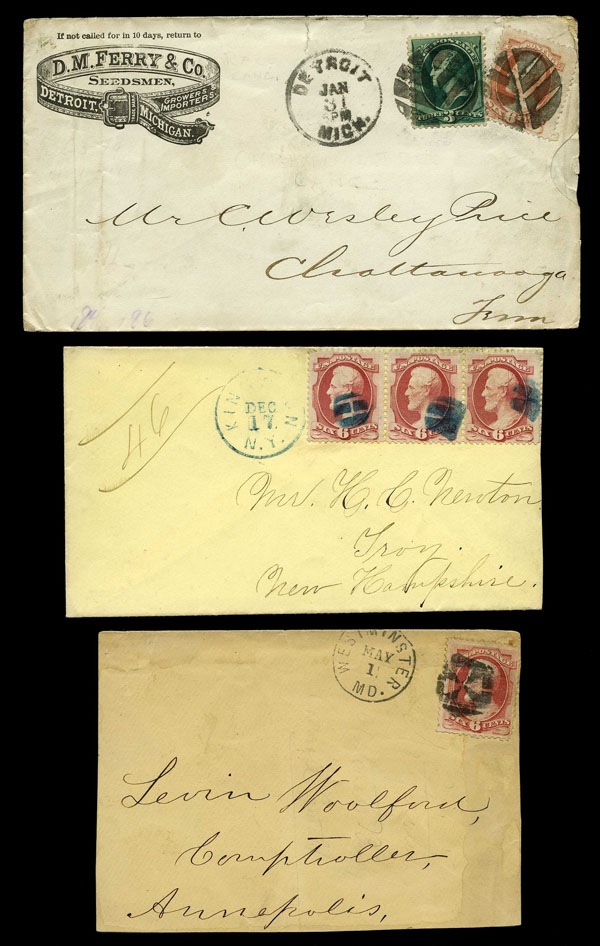 If not called for in 10 days, return to
D.M. FERRY & CO.
SEEDSMEN,
DETROIT,
GROWERS
IMPORTERS
MICHIGAN.
DETROIT
JAN
31
PM
MICH.
U.S. POSTAGE
THREE 3 CENTS
Mr C. Wesley Price
Chattanooga
Tenn
46
KIN
DEC
17
N.Y.
U.S. POSTAGE
SIX 6 CENTS
U.S. POSTAGE
SIX 6 CENTS
U.S. POSTAGE
SIX 6 CENTS
Mr. H. C. Newton
Troy.
New Hampshire.
WESTMINSTER
MAY
1
MD.
POSTAGE
SIX 6 CENTS
Levin Woolford,
Comptroller,
Annepolis,